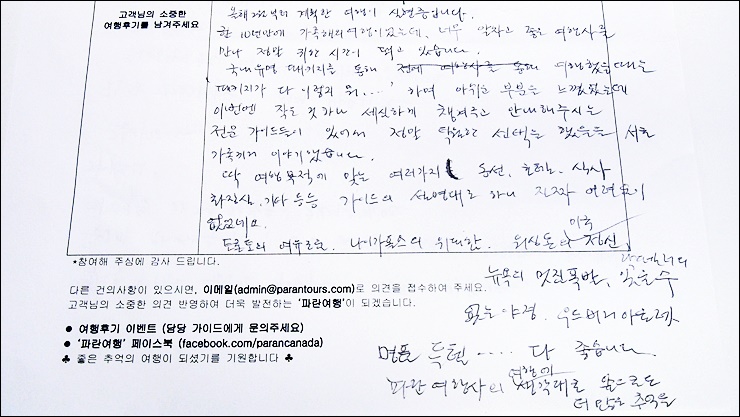 고객님의 소중한
여행후기를 남겨주세요
올해 초부터 계획한 여행이 실현중입니다.
한 10년만에 가족해외여행이었는데, 너무 알차고 좋은 여행사를
만나 정말 귀한 시간이 되고 있습니다.
국내유명 패키지를 통해 전에 여행사를 통해 여행했을때는
패키지가 다 이렇지 뭐...' 하며 아쉬운 부분을 느꼈었는데
이번엔 작은 것까지 세심하게 챙겨주고 안내해주시는
전문 가이드들이 있어서 정말 탁월한 선택을 했음을 서로
가족끼리 이야기했습니다.
딱 여행 목적에 맞는 여러가지 동선, 호텔, 식사
화장실, 기타 등등 가이드의 설명대로 하니 진짜 어려움이
없었네요.
토론토의 여유로움, 나이가폴스의 위대함, 워싱톤의 미국 정신,
뉴욕의 멋진 폭발, 잊을 수
없는 야경, 우드버리 아울렛
명품 득템 .... 다 좋습니다.
파란 여행사의 생각대로 앞으로도
더 많은 추억을
*참여해 주심에 감사 드립니다.
다른 건의사항이 있으시면, 이메일(admin@parantours.com)로 의견을 접수하여 주세요.
고객님의 소중한 의견 반영하여 더욱 발전하는 '파란여행'이 되겠습니다.
● 여행후기 이벤트 (담당 가이드에게 문의주세요)
● '파란여행' 페이스북 (facebook.com/parancanada)
♣ 좋은 추억의 여행이 되셨기를 기원합니다 ♣